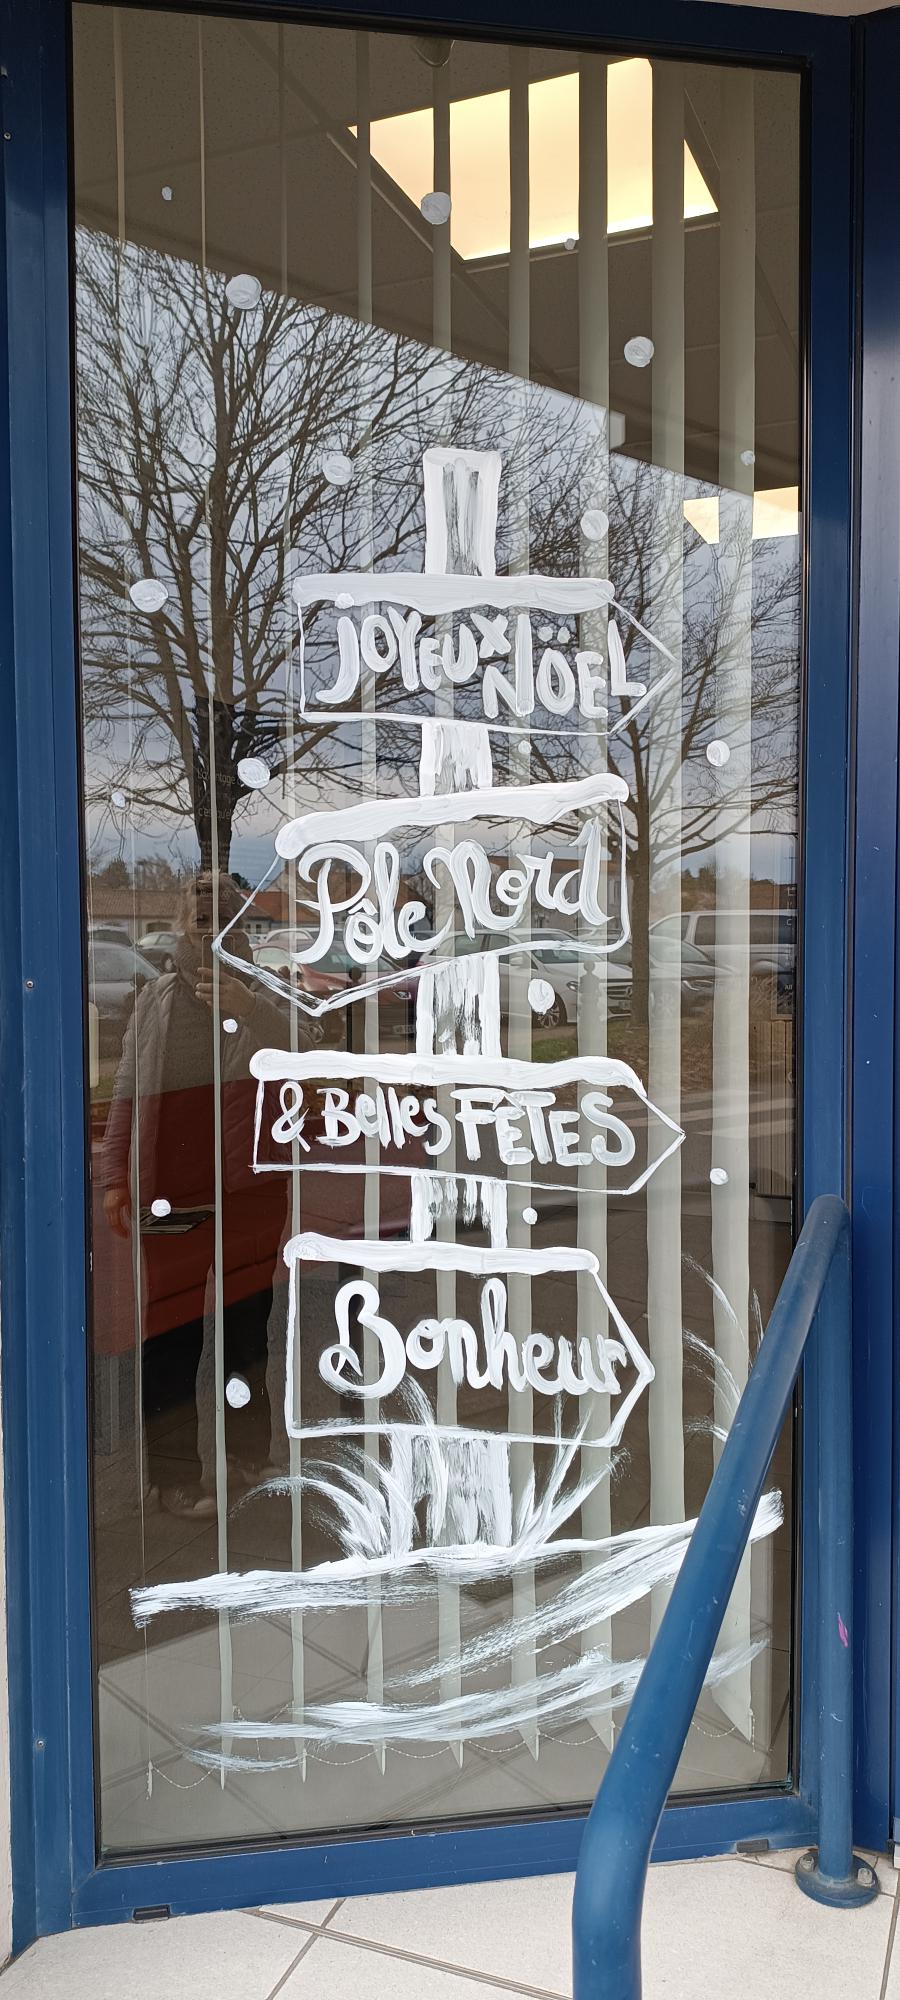 JOYEUX
NÖEL
Pôle Nord
& Belles FÊTES
Bonheur